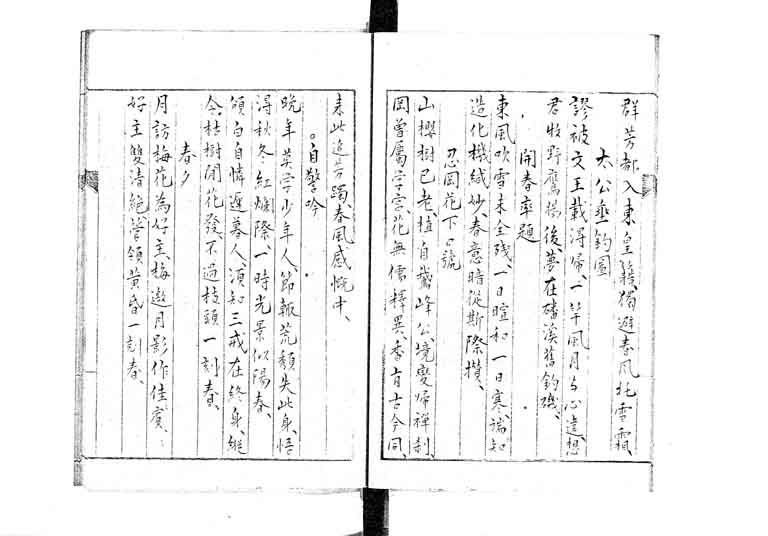 群芳都入東皇籍獨避春風托雪霜
太公垂釣圖
謬被文王載淂帰一竿風月与心違想
君牧野鷹揚後夢在磻溪舊釣磯
開春率題
東風吹雪未全残一日暄和一日寒端知
造化機緘妙春意暗從斯際攅
忍岡花下口號
山櫻樹已老植自鷲峰公境變帰禅刹
岡曽屬学宮花無儒釋異香有古今同
来此追芳躅春風感慨中
自警吟
晩年英学少年人節報荒頽失此身悟
淂秋冬紅爐際一時光景似陽春
頒白自憐遲暮人須知三戒在終身縦
令枯樹闭花發不過枝頭一刻春
春夕
月訪梅花為好主梅邀月影作佳賓
好主雙清絶管領黄昏一刻春